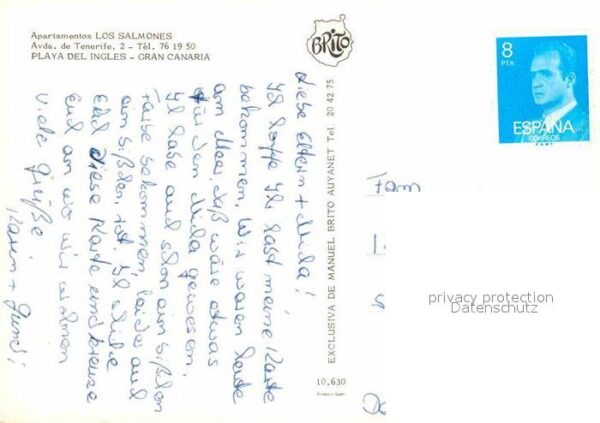 Apartamentos LOS SALMONES
Avda. de Tenerife, 2 - Tél. 76 19 50
PLAYA DEL INGLES - GRAN CANARIA
BRITO
8
PTA
ESPAÑA
CORREOS
Liebe Eltern + Mila!
Ich hoffe Ihr habt meine Karte
bekommen. Wir waren heute
am Meer, das wäre etwas
für den Mila gewesen.
Ich habe auch schon ein bißchen
Farbe bekommen, leider auch
ein bißchen rot. Ich schicke
Euch diese Karte und kreuze
Euch an wo wir wohnen
Viele Grüße
Karen + Gundi
EXCLUSIVA DE MANUEL BRITO AUYANET Tel. 20 42 75
10.630
Fam
privacy protection
Datenschutz